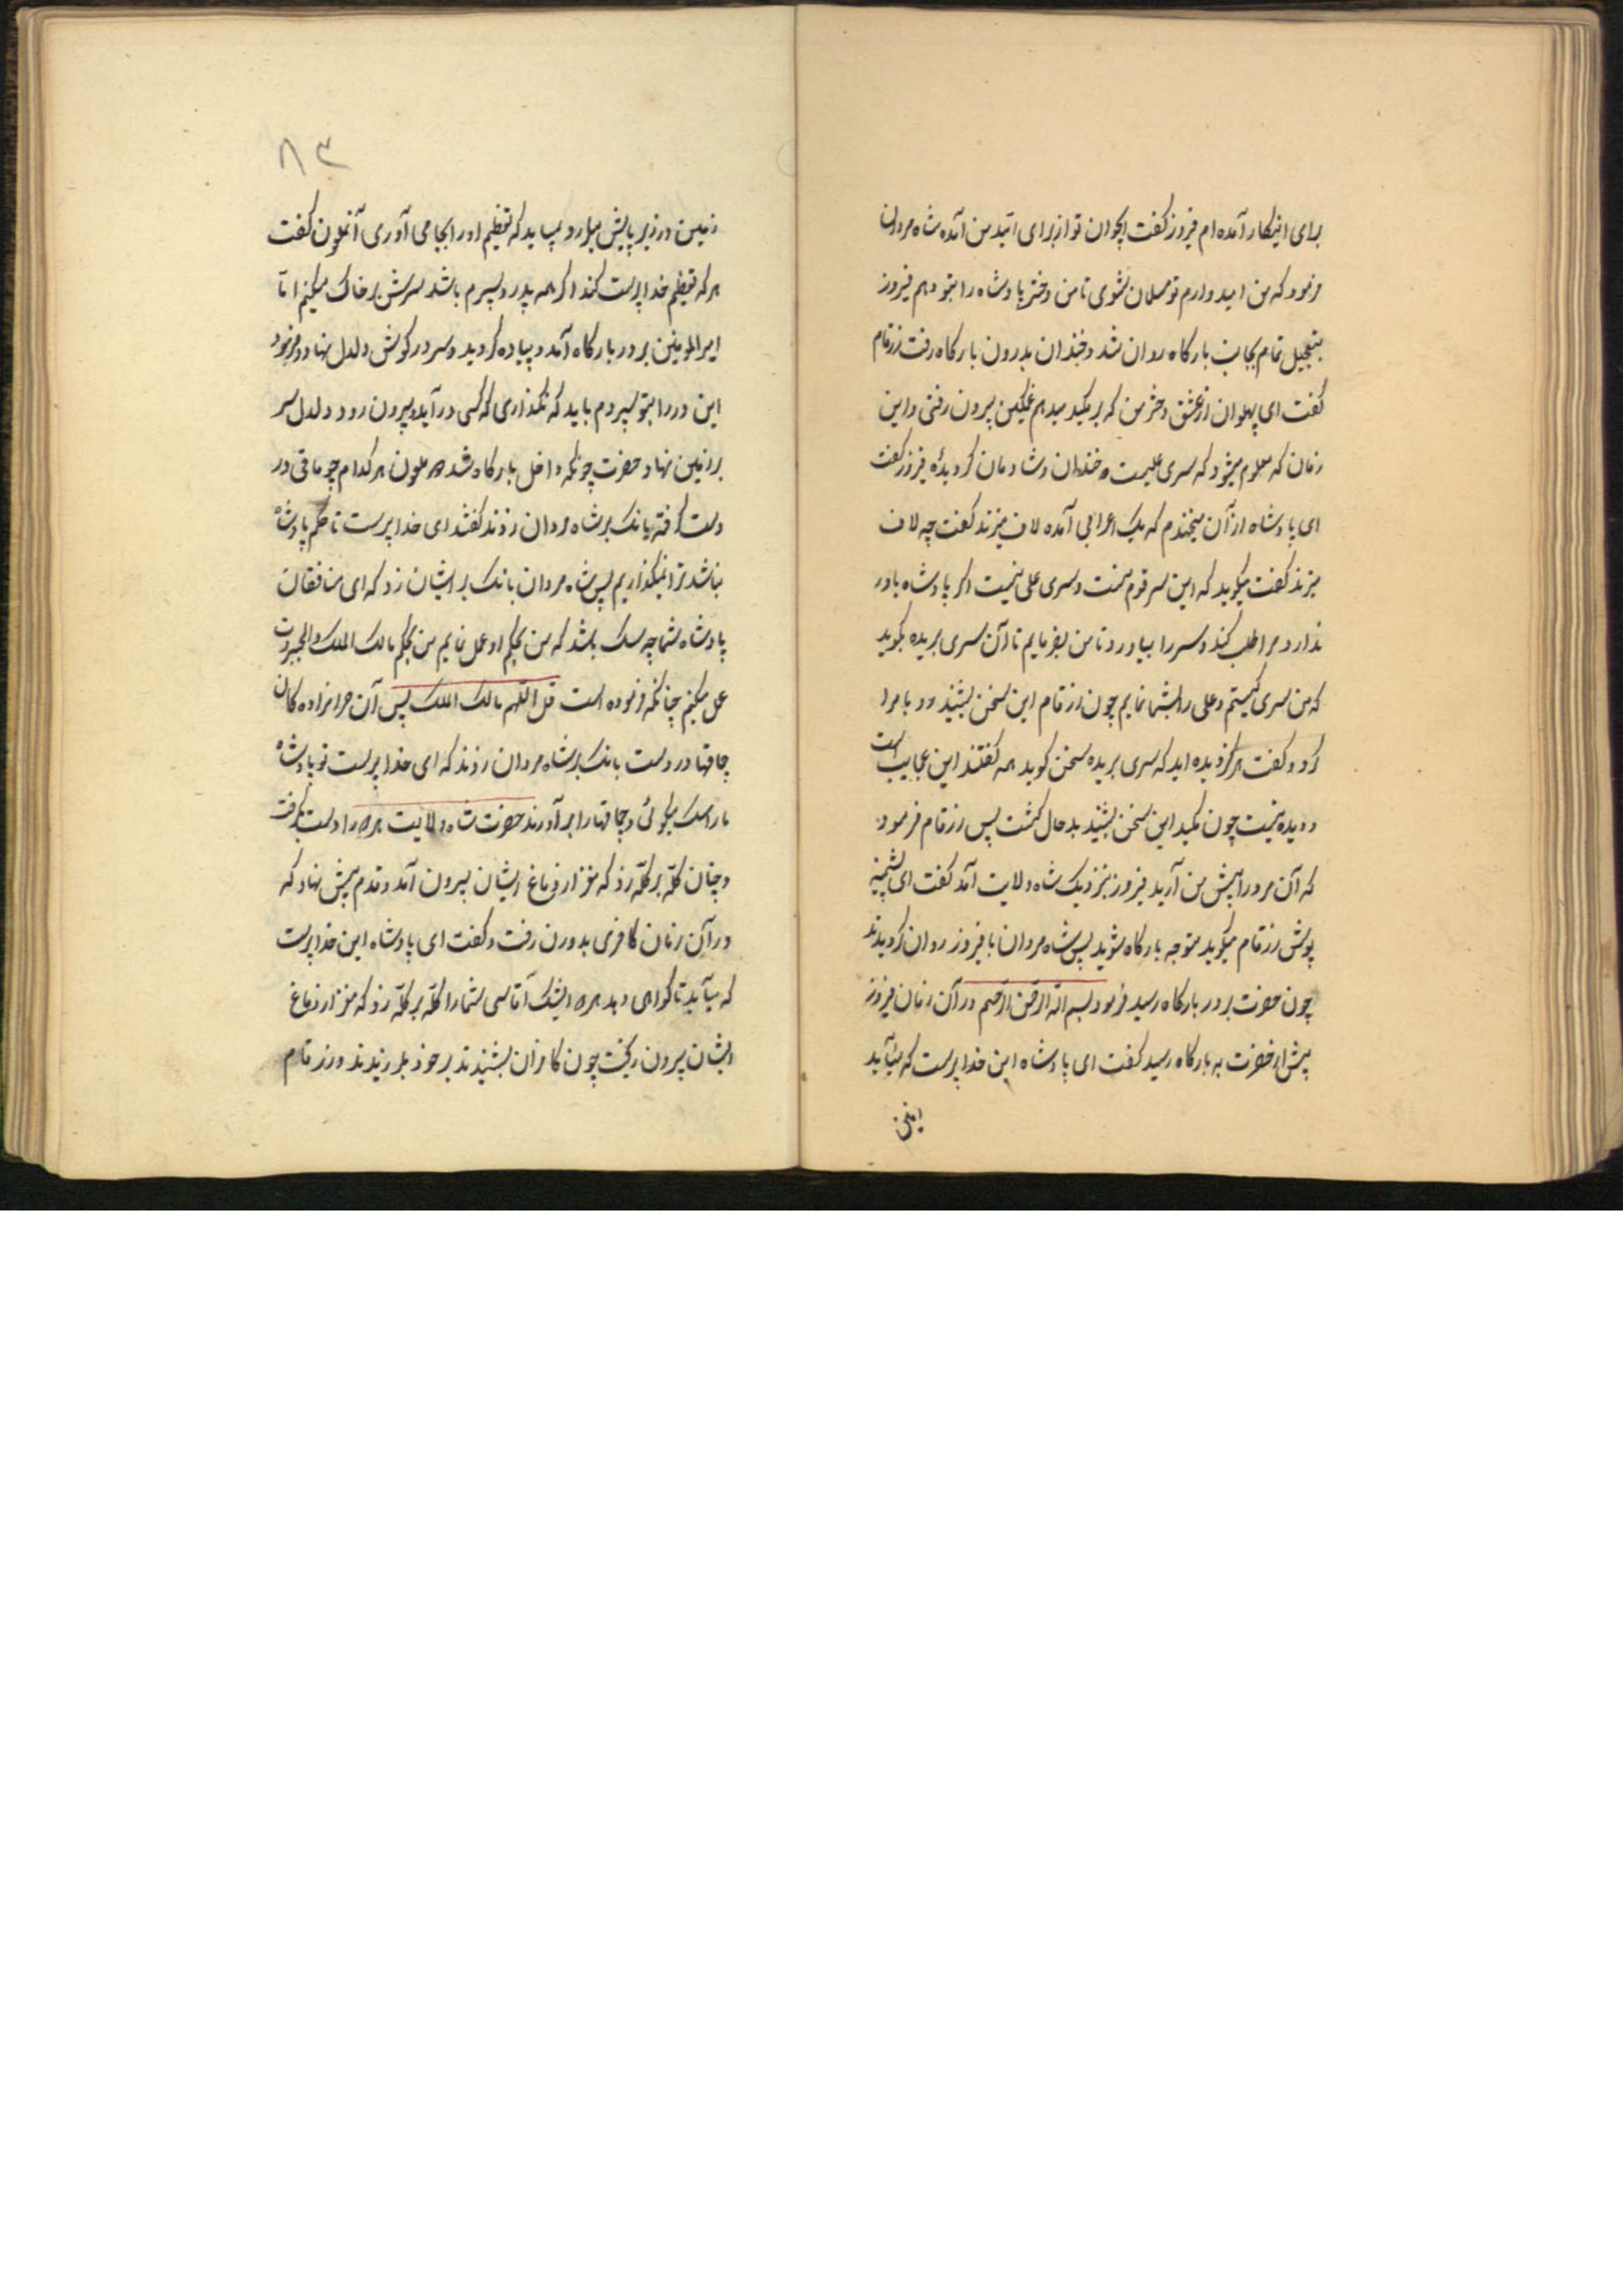 برای اینکار آمده ام فیروز گفت ایجوان تو از برای امید من آمده شاه مردان
فرمود که من امیدوارم تو مسلمان شوی تا من دختر پادشاه را بتو دهم فیروز
بتعجیل تمام بجانب بارکاه روان شد و خندان بدرون بارکاه رفت زرقام
گفت ای پهلوان از عشق دختر من که بر مکید میدهم غمکین بیرون رفتی و این
زمان که معلوم میشود که سری علیست خندان و شادمان کردیدهٔ فیروز گفت
ای پادشاه از آن میخندم که یک اعرابی آمده لاف میزند گفت چه لاف
میزند گفت میکوید که این سر قوم منست و سری علی نیست اکر پادشاه باور
ندارد مرا طلب کند و سر را بیاورد تا من بفرمایم تا آن سری بریده بکوید
که من سری کیستم و علی را بشما نمایم چون زرقام این سخن بشنید رو بامرا
کرد و گفت هرکز دیده اید که سری بریده سخن کوید همه گفتند این عجایب است
و دیده نیست چون مکید این سخن بشنید بدحال کشت پس زرقام فرمود
که آن مرد را پیش من آرید فیروز بنزدیک شاه ولایت آمد گفت ای پشمینه
پوش زرقام میکوید متوجه بارکاه شوید پس شاه مردان با فیروز روان کردیدند
چون حضرت بدر بارکاه رسید فرمود بسم الله الرحمن الرحیم در آن زمان فیروز
پیش از حضرت به بارکاه رسید گفت ای پادشاه این خدا پرست که میآید
زمین
۸۳
زمین در زیر پایش میلرزد میباید که تعظیم او را بجا می آوری آنملعون گفت
هر که تعظیم خدا پرست کند اکر همه پدر و پسرم باشد سرش بر خاک میکنم اما
امیرالمومنین بر در بارکاه آمد و پیاده کردید و سر در کوش دلدل نهاد و فرمود
این در را بتو سپردم باید که نکذاری که کسی در آید و بیرون رود دلدل سر
بر زمین نهاد حضرت چونکه داخل بارکاه شد ملعون هر کدام چوماقی در
دست گرفته بانک بر شاه مردان زدند گفتند ای خدا پرست تا حکم پادشاه
نباشد ترا نمیکذاریم پس شاه مردان بانک بر ایشان زد که ای منافقان
پادشاه شما چه سک باشد که من بحکم او عمل نمایم من بحکم مالک الملک والجبروت
عمل میکنم چنانکه فرموده است قل اللهم مالک الملک پس آن حرامزاده کان
چماقها در دست بانک بر شاه مردان زدند که ای خدا پرست تو پادشاه
ما را سک میکوئی و چماقها را بر آوردند حضرت شاه ولایت را دست بکرفت
و چنان کله بر کله زد که مغز از دماغ ایشان بیرون آمد و قدم پیش نهاد که
در آن زمان کافری بدورن رفت و گفت ای پادشاه این خدا پرست
که میآید تا کواهی دهد ایشک آقاسی شما را کله بر کله زد که مغز از دماغ
ایشان بیرون ریخت چون کافران بشنیدند بر خود بلرزیدند و زرقام